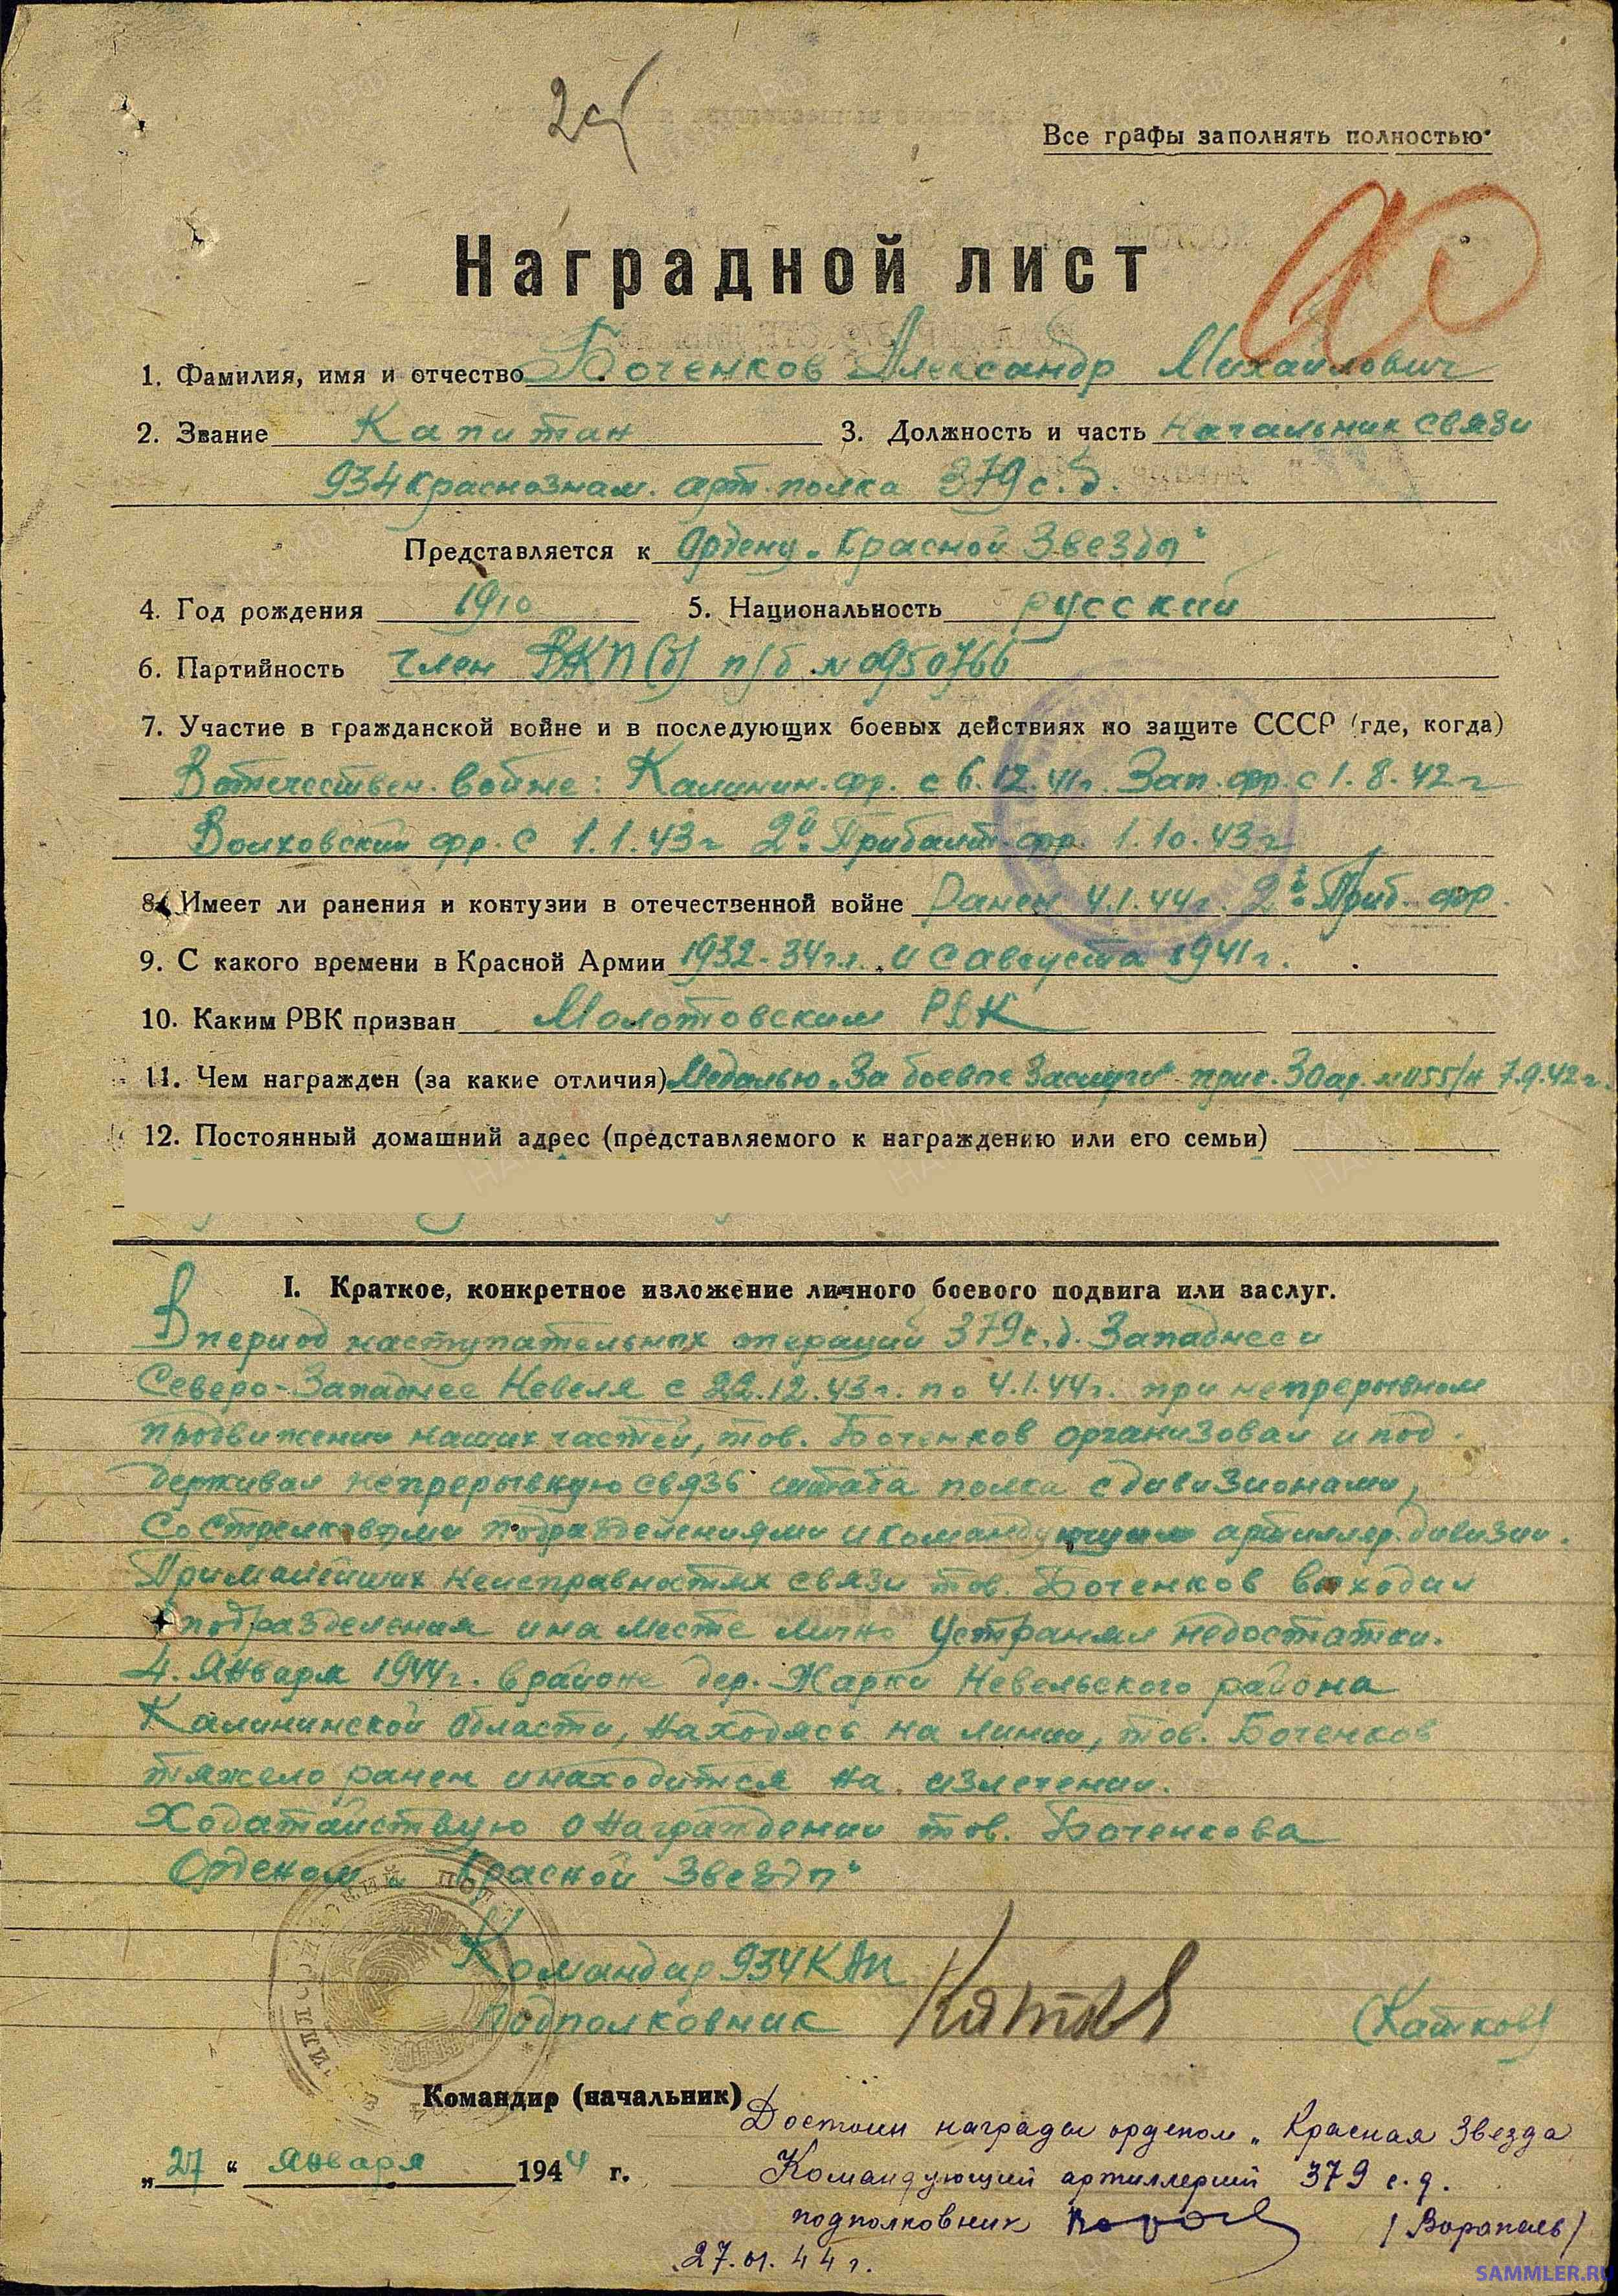 Все графы заполнять полностью
Наградной лист
1. Фамилия, имя и отчество Боченков Александр Михайлович
2. Звание Капитан 3. Должность и часть Начальник связи
934 краснознам. арт. полка 379 с.д.
Представляется к Ордену „Красной Звезды"
4. Год рождения 1910 5. Национальность русский
6. Партийность член ВКП(б) п/б № 0950766
7. Участие в гражданской войне и в последующих боевых действиях по защите СССР (где, когда)
В отечествен. войне: Калинин. фр. с 6.12.41г. Зап. фр. с 1.8.42г
Волховский фр. с 1.1.43г 2й Прибалт. фр. 1.10.43г
8. Имеет ли ранения и контузии в отечественной войне Ранен 4.1.44г. 2й Приб. фр.
9. С какого времени в Красной Армии 1932-34г.г. и с августа 1941г.
10. Каким РВК призван Молотовским РВК
11. Чем награжден (за какие отличия) Медалью „За боевые заслуги" прик. 30 ар. №055/н 7.9.42г.
12. Постоянный домашний адрес (представляемого к награждению или его семьи)
I. Краткое, конкретное изложение личного боевого подвига или заслуг.
В период наступательных операций 379 с.д. Западнее и
Северо-Западнее Невеля с 22.12.43г. по 4.1.44г. при непрерывном
продвижении наших частей, тов. Боченков организовал и под
держивал непрерывную связь штаба полка с дивизионами,
со стрелковыми подразделениями и командующим артиллер. дивизии.
При малейших неисправностях связи тов. Боченков выходил
в подразделения и на месте лично устранял недостатки.
4. Января 1944г. в районе дер. Жарки Невельского района
Калининской области, находясь на линии, тов. Боченков
тяжело ранен и находится на излечении.
Ходатайствую о награждении тов. Боченкова
Орденом „Красной Звезды"
Командир 934 КАП
Подполковник (Катков)
Командир (начальник)
Достоин награды орденом „Красная Звезда
Командующий артиллерией 379 с.д.
„27" января 1944 г.
подполковник
27.01.44г.
SAMMLER.RU